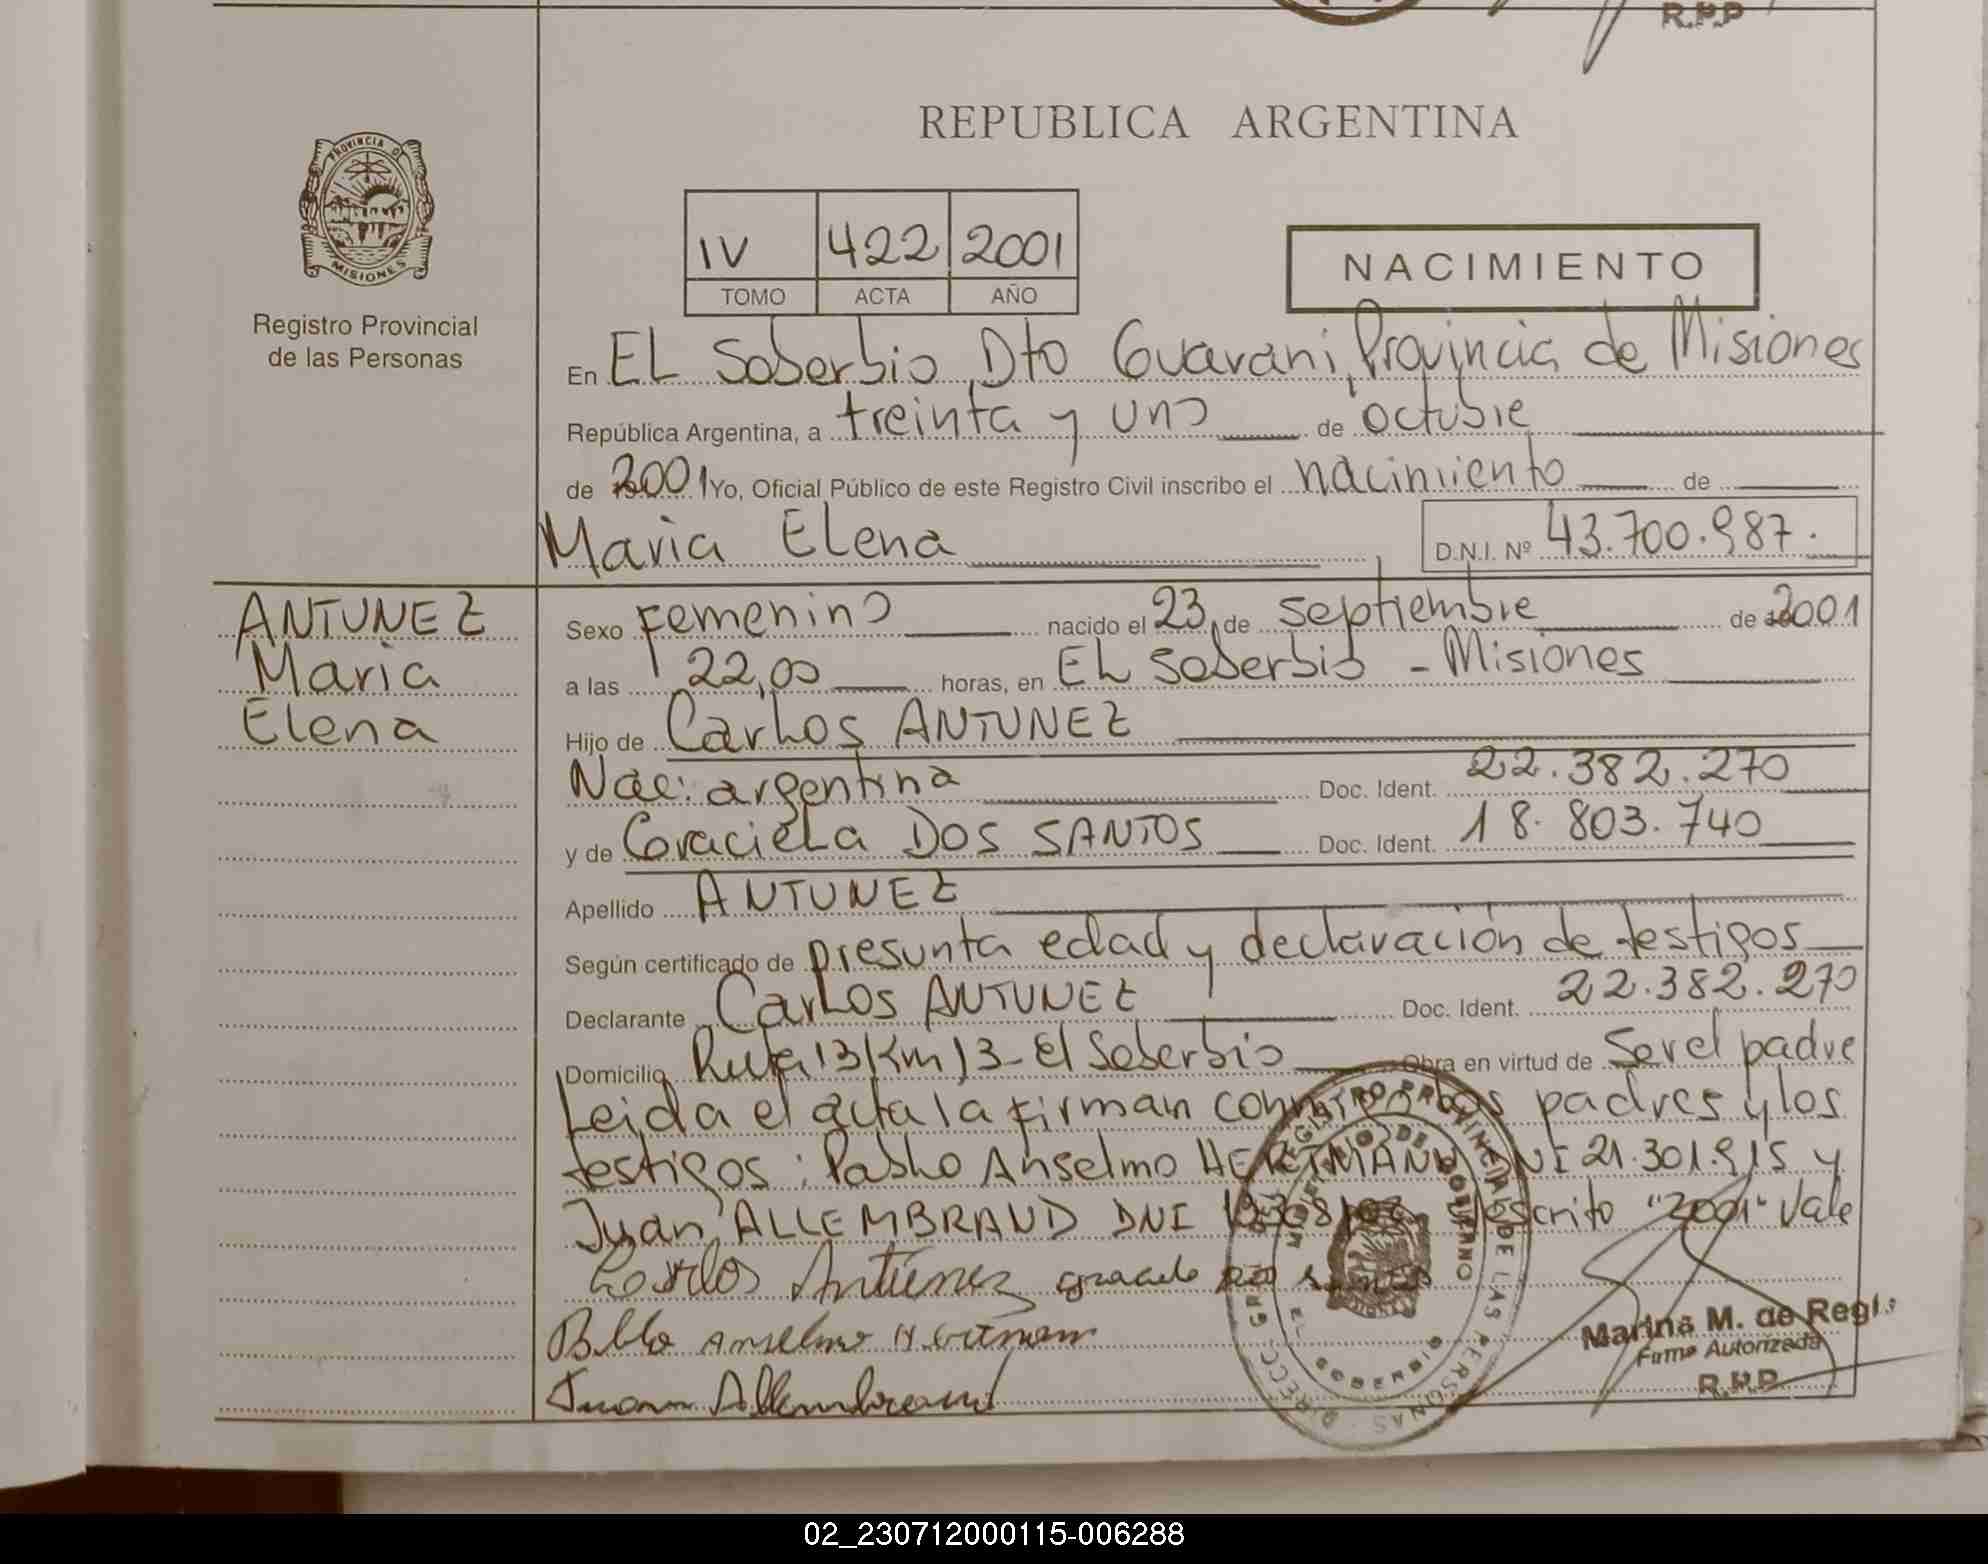 R.P.P
REPUBLICA ARGENTINA
PROVINCIA D
MISIONES
Registro Provincial
de las Personas
IV 422 2001
TOMO ACTA AÑO
NACIMIENTO
En EL Soberbio, Dto Guarani, Provincia de Misiones
República Argentina, a treinta y uno de octubre
de 2001 Yo, Oficial Público de este Registro Civil inscribo el nacimiento de
Maria Elena D.N.I. Nº 43.700.987.
ANTUNEZ
Maria
Elena
Sexo Femenino nacido el 23 de Septiembre de 2001
a las 22,00 horas, en EL Soberbio - Misiones
Hijo de Carlos ANTUNEZ
Nac: argentina Doc. Ident. 22.382.270
y de Graciela DOS SANTOS Doc. Ident. 18.803.740
Apellido ANTUNEZ
Según certificado de presunta edad y declaración de testigos
Declarante Carlos ANTUNEZ Doc. Ident. 22.382.270
Domicilio Ruta 13 Km 13 - El Soberbio Obra en virtud de Ser el padre
Leida el acta la firman conmigo, los padres y los
testigos: Pablo Anselmo HERTMANN DNI 21.301.915 y
Juan ALLEMBRAND DNI "2001" Vale
Carlos Antunez
Pablo Anselmo Hertmann
Juan Allembrand
REGISTRO PROVINCIAL DE LAS PERSONAS
MINISTERIO DE GOBIERNO
EL SOBERBIO
Marina M. de Regis
Firma Autorizada
R.P.P
02_230712000115-006288